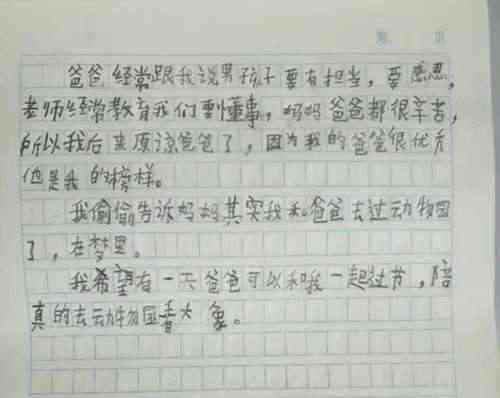 第 页
爸爸经常跟我说男孩子要有担当，要感恩，
老师经常教育我们要懂事，妈妈爸爸都很辛苦，
所以我后来原谅爸爸了，因为我的爸爸很优秀
他是我的榜样。
我偷偷告诉妈妈其实我和爸爸去过动物园
了，在梦里。
我希望有一天爸爸可以和我一起过节，陪
真的去动物园看大象。